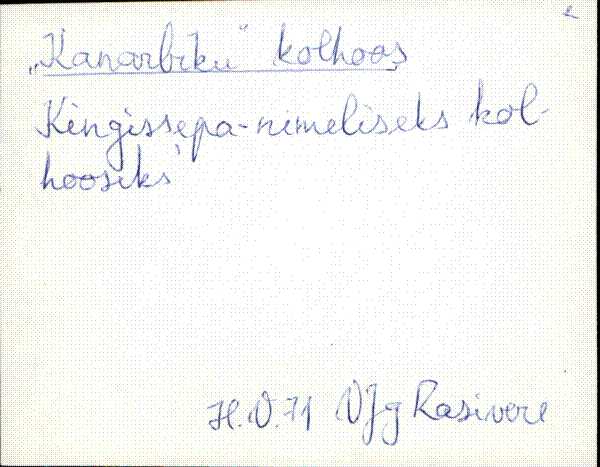 „Kanarbiku" kolhoos
Kingissepa-nimeliseks kol-
hoosiks
H.V.71 VJg Rasivere